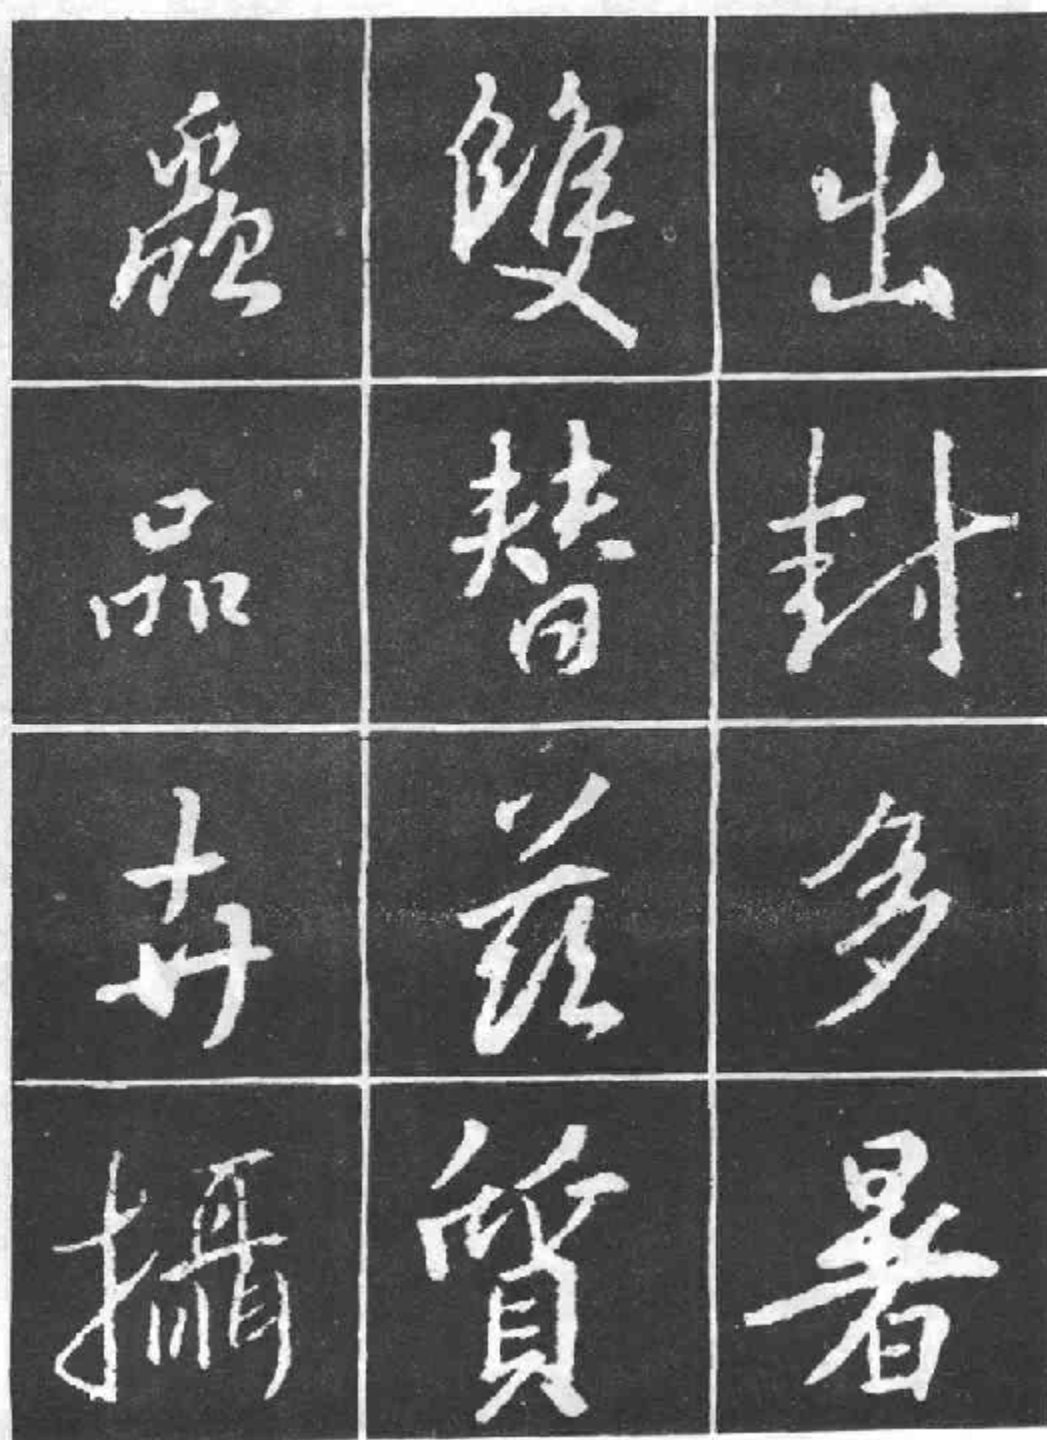 出封多暑
雙替茲質
品卉攝